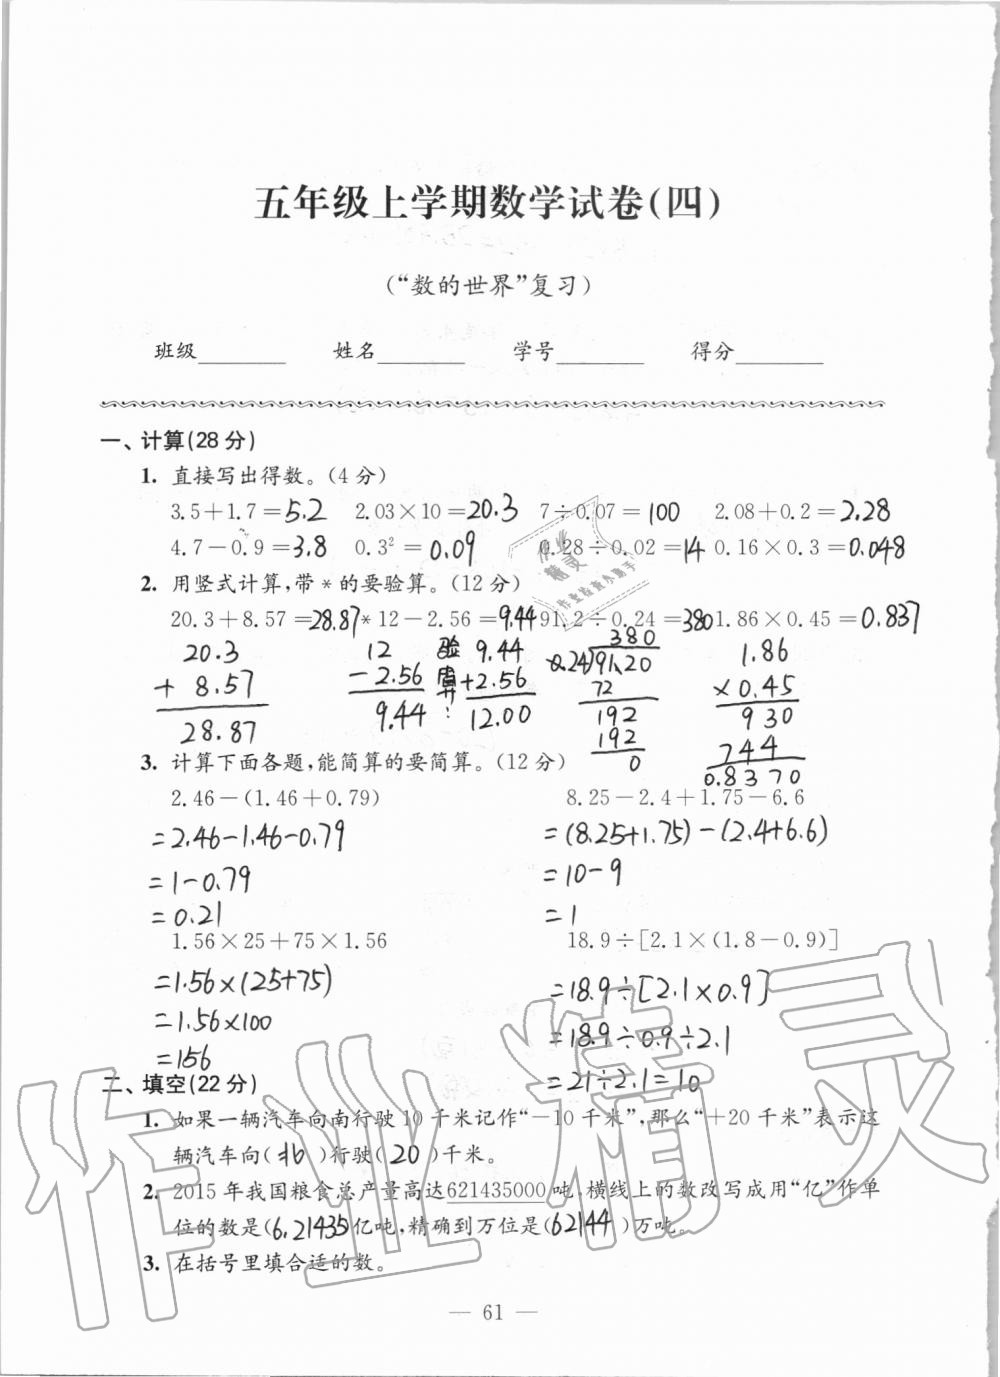 五年级上学期数学试卷(四)
(“数的世界”复习)
班级______ 姓名______ 学号______ 得分______
一、计算(28分)
1. 直接写出得数。(4分)
3.5+1.7=5.2 2.03×10=20.3 7÷0.07=100 2.08+0.2=2.28
4.7-0.9=3.8 0.3²=0.09 0.28÷0.02=14 0.16×0.3=0.048
2. 用竖式计算,带*的要验算。(12分)
20.3+8.57=28.87 *12-2.56=9.44 91.2÷0.24=380 1.86×0.45=0.837
20.3
+ 8.57
28.87
12
-2.56
9.44
验算:
9.44
+2.56
12.00
380
0.24)91.20
72
192
192
0
1.86
×0.45
930
744
0.8370
3. 计算下面各题,能简算的要简算。(12分)
2.46-(1.46+0.79) 8.25-2.4+1.75-6.6
=2.46-1.46-0.79 =(8.25+1.75)-(2.4+6.6)
=1-0.79 =10-9
=0.21 =1
1.56×25+75×1.56 18.9÷[2.1×(1.8-0.9)]
=1.56×(25+75) =18.9÷[2.1×0.9]
=1.56×100 =18.9÷0.9÷2.1
=156 =21÷2.1=10
二、填空(22分)
1. 如果一辆汽车向南行驶10千米记作“-10千米”,那么“+20千米”表示这
辆汽车向(北)行驶(20)千米。
2. 2015年我国粮食总产量高达621435000吨,横线上的数改写成用“亿”作单
位的数是(6.21435)亿吨,精确到万位是(62144)万吨。
3. 在括号里填合适的数。
— 61 —
作业精灵
作业精灵
作业检查小助手